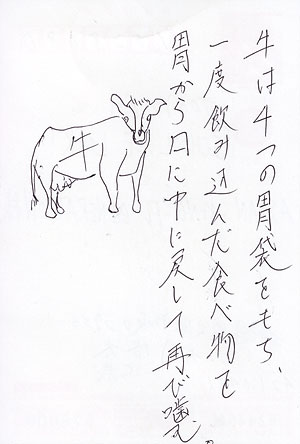 牛は4つの胃袋をもち、
一度飲み込んだ食べ物を
胃から口に中に戻して再び噛む。
牛